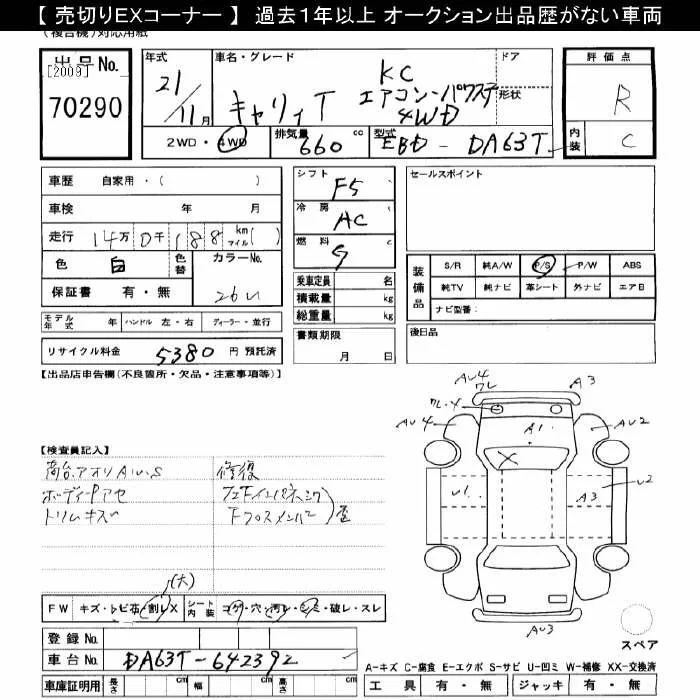 【 売切りEXコーナー 】 過去１年以上 オークション出品歴がない車両
(複合機)対応用紙
出品No. [2009] 70290
年式 21/11月
車名・グレード キャリィT KC エアコン・パワステ 4WD
ドア 形状
2WD・4WD 排気量 660 cc 型式 EBD-DA63T
評価点 R
内装 C
車歴 自家用・( )
車検 年 月
走行 14万0千188 km マイル( )
色 白 色替 カラーNo. 26U
保証書 有・無
モデル年式 年 ハンドル 左・右 ディーラー・並行
リサイクル料金 5380 円 預託済
シフト F5
冷房 AC
燃料 G c
乗車定員 名
積載量 kg
総重量 kg
書類期限 月 日
セールスポイント
装備品 S/R 純A/W P/S P/W ABS
純TV 純ナビ 革シート 外ナビ エアB
ナビ型番:
後日品
【出品店申告欄(不良箇所・欠品・注意事項等)】
AU4 ワレ A3
ワレ・X
AU4 A1 AU2
U1 A3 U2
X
AU3
【検査員記入】
荷台アオリAU、S 修復
ボディPアセ
トリムキズ Fクロスメンバー 歪
(大)
FW キズ・トビ石・割レX シート内装 コゲ・穴・汚レ・シミ・破レ・スレ
登録No.
車台No. DA63T-642392
車庫証明用 長さ cm 幅 cm 高さ cm
スペア
A-キズ C-腐食 E-エクボ S-サビ U-凹ミ W-補修 XX-交換済
工具 有・無 ジャッキ 有・無